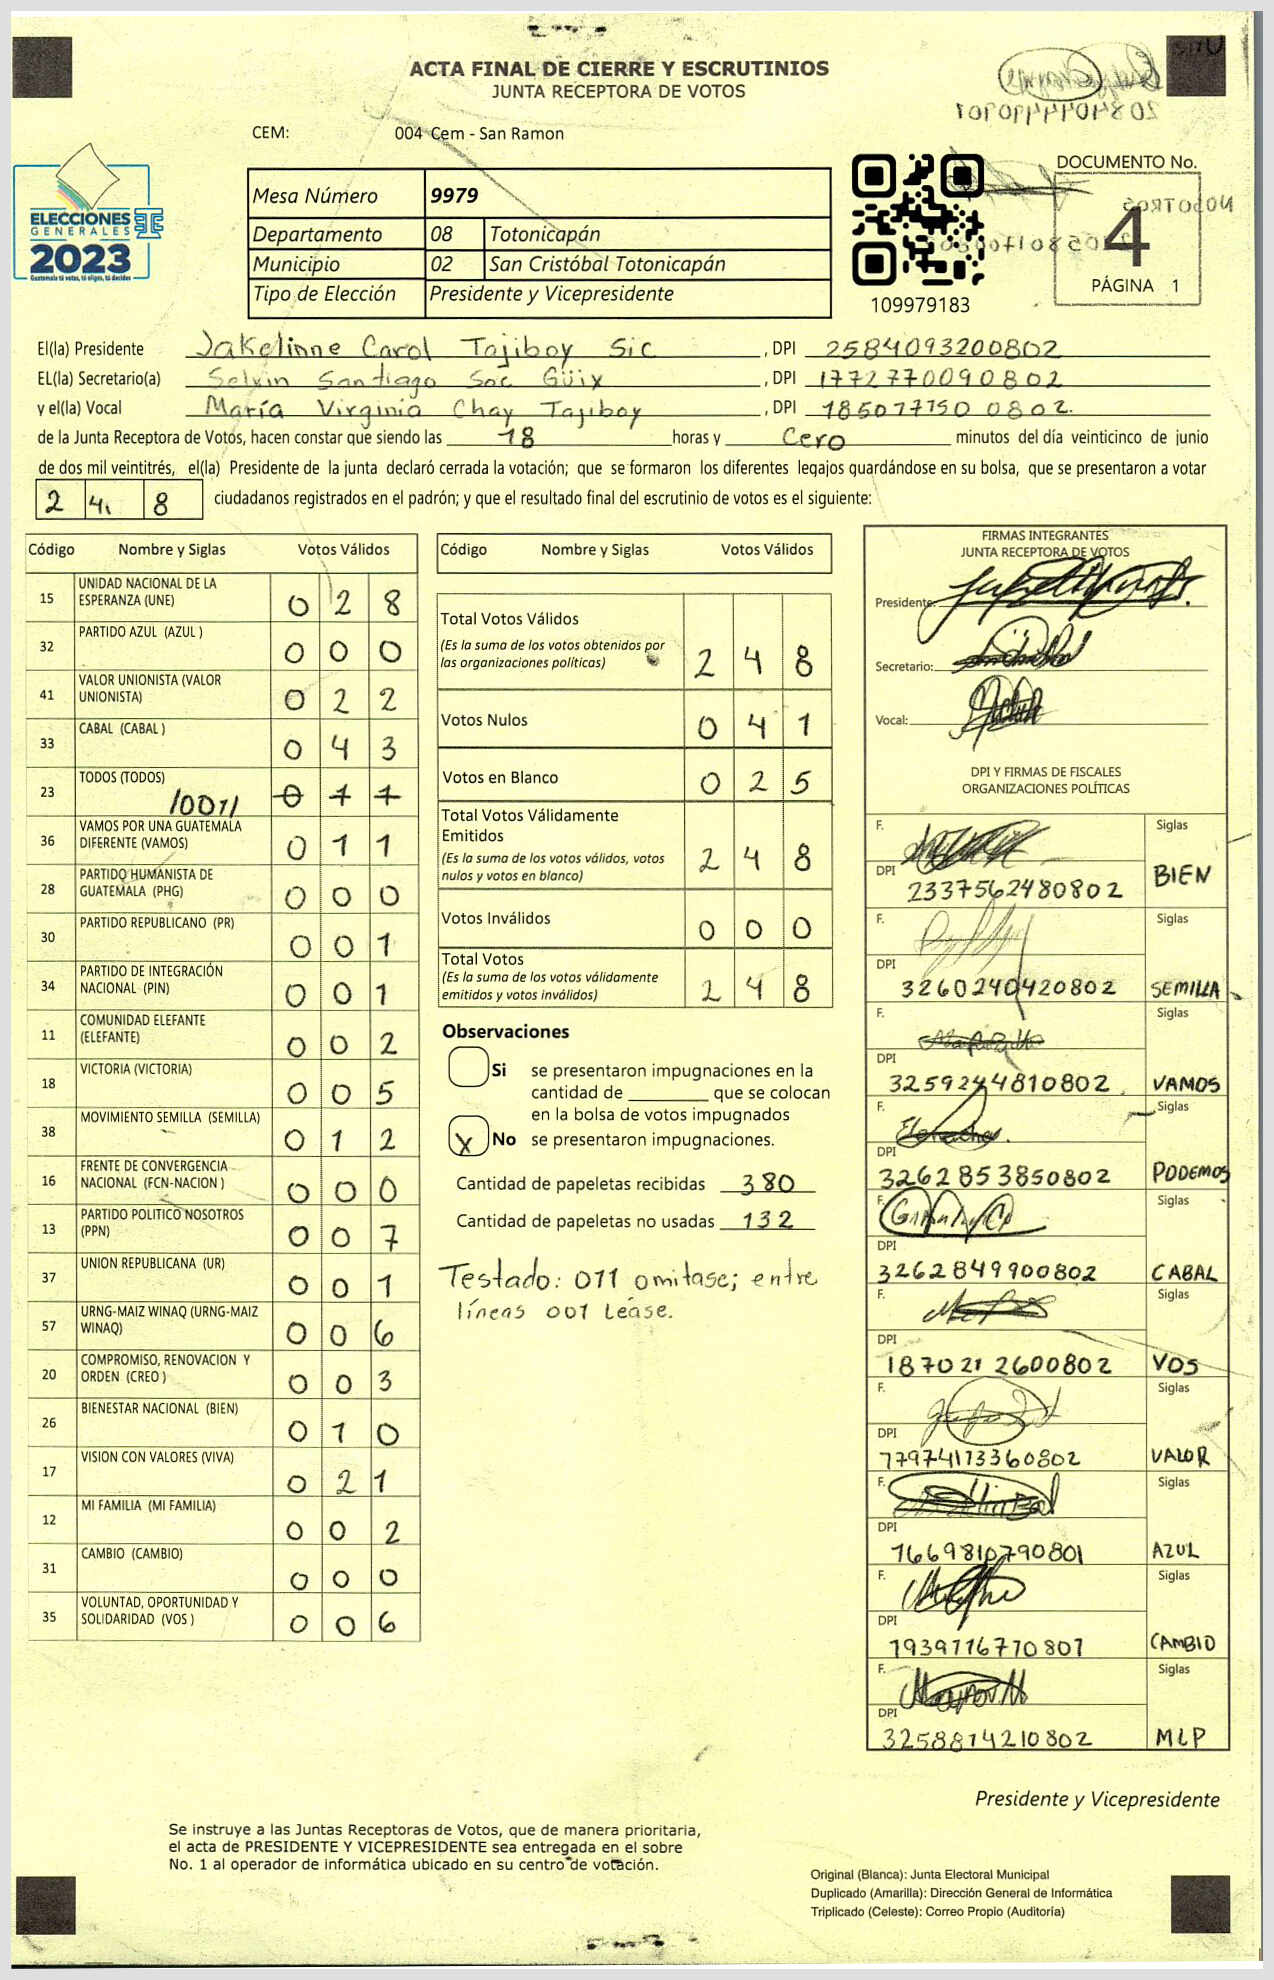 ACTA FINAL DE CIERRE Y ESCRUTINIOS
JUNTA RECEPTORA DE VOTOS
CEM: 004 Cem - San Ramon
ELECCIONES
GENERALES
2023
Guatemala tú votas, tú eliges, tú decides
Mesa Número 9979
Departamento 08 Totonicapán
Municipio 02 San Cristóbal Totonicapán
Tipo de Elección Presidente y Vicepresidente
109979183
DOCUMENTO No.
4
PÁGINA 1
El(la) Presidente Jakelinne Carol Tajiboy Sic, DPI 2584093200802
EL(la) Secretario(a) Selvin Santiago Soc Güix, DPI 1772770090802
y el(la) Vocal María Virginia Chay Tajiboy, DPI 1850777500802.
de la Junta Receptora de Votos, hacen constar que siendo las 18 horas y Cero minutos del día veinticinco de junio
de dos mil veintitrés, el(la) Presidente de la junta declaró cerrada la votación; que se formaron los diferentes legajos guardándose en su bolsa, que se presentaron a votar
2 4 8 ciudadanos registrados en el padrón; y que el resultado final del escrutinio de votos es el siguiente:
Código Nombre y Siglas Votos Válidos
15 UNIDAD NACIONAL DE LA ESPERANZA (UNE) 0 2 8
32 PARTIDO AZUL (AZUL ) 0 0 0
41 VALOR UNIONISTA (VALOR UNIONISTA) 0 2 2
33 CABAL (CABAL ) 0 4 3
23 TODOS (TODOS) /001/ 0 1 1
36 VAMOS POR UNA GUATEMALA DIFERENTE (VAMOS) 0 1 1
28 PARTIDO HUMANISTA DE GUATEMALA (PHG) 0 0 0
30 PARTIDO REPUBLICANO (PR) 0 0 1
34 PARTIDO DE INTEGRACIÓN NACIONAL (PIN) 0 0 1
11 COMUNIDAD ELEFANTE (ELEFANTE) 0 0 2
18 VICTORIA (VICTORIA) 0 0 5
38 MOVIMIENTO SEMILLA (SEMILLA) 0 1 2
16 FRENTE DE CONVERGENCIA NACIONAL (FCN-NACION ) 0 0 0
13 PARTIDO POLITICO NOSOTROS (PPN) 0 0 7
37 UNION REPUBLICANA (UR) 0 0 1
57 URNG-MAIZ WINAQ (URNG-MAIZ WINAQ) 0 0 6
20 COMPROMISO, RENOVACION Y ORDEN (CREO ) 0 0 3
26 BIENESTAR NACIONAL (BIEN) 0 1 0
17 VISION CON VALORES (VIVA) 0 2 1
12 MI FAMILIA (MI FAMILIA) 0 0 2
31 CAMBIO (CAMBIO) 0 0 0
35 VOLUNTAD, OPORTUNIDAD Y SOLIDARIDAD (VOS ) 0 0 6
Código Nombre y Siglas Votos Válidos
Total Votos Válidos
(Es la suma de los votos obtenidos por
las organizaciones políticas) 2 4 8
Votos Nulos 0 4 1
Votos en Blanco 0 2 5
Total Votos Válidamente
Emitidos
(Es la suma de los votos válidos, votos
nulos y votos en blanco) 2 4 8
Votos Inválidos 0 0 0
Total Votos
(Es la suma de los votos válidamente
emitidos y votos inválidos) 2 4 8
Observaciones
Si se presentaron impugnaciones en la
cantidad de ________ que se colocan
en la bolsa de votos impugnados
X No se presentaron impugnaciones.
Cantidad de papeletas recibidas 380
Cantidad de papeletas no usadas 132
Testado: 011 omitase; entre
líneas 001 Léase.
FIRMAS INTEGRANTES
JUNTA RECEPTORA DE VOTOS
Presidente:
Secretario:
Vocal:
DPI Y FIRMAS DE FISCALES
ORGANIZACIONES POLÍTICAS
F. Siglas
DPI 2337562480802 BIEN
F. Siglas
DPI 3260240420802 SEMILLA
F. Siglas
DPI 3259244810802 VAMOS
F. Siglas
DPI 3262853850802 PODEMOS
F. Siglas
DPI 3262849900802 CABAL
F. Siglas
DPI 1870212600802 VOS
F. Siglas
DPI 77974173360802 VALOR
F. Siglas
DPI 1669810790801 AZUL
F. Siglas
DPI 1939116770801 CAMBIO
F. Siglas
DPI 3258814210802 MLP
Presidente y Vicepresidente
Se instruye a las Juntas Receptoras de Votos, que de manera prioritaria,
el acta de PRESIDENTE Y VICEPRESIDENTE sea entregada en el sobre
No. 1 al operador de informática ubicado en su centro de votación.
Original (Blanca): Junta Electoral Municipal
Duplicado (Amarilla): Dirección General de Informática
Triplicado (Celeste): Correo Propio (Auditoría)